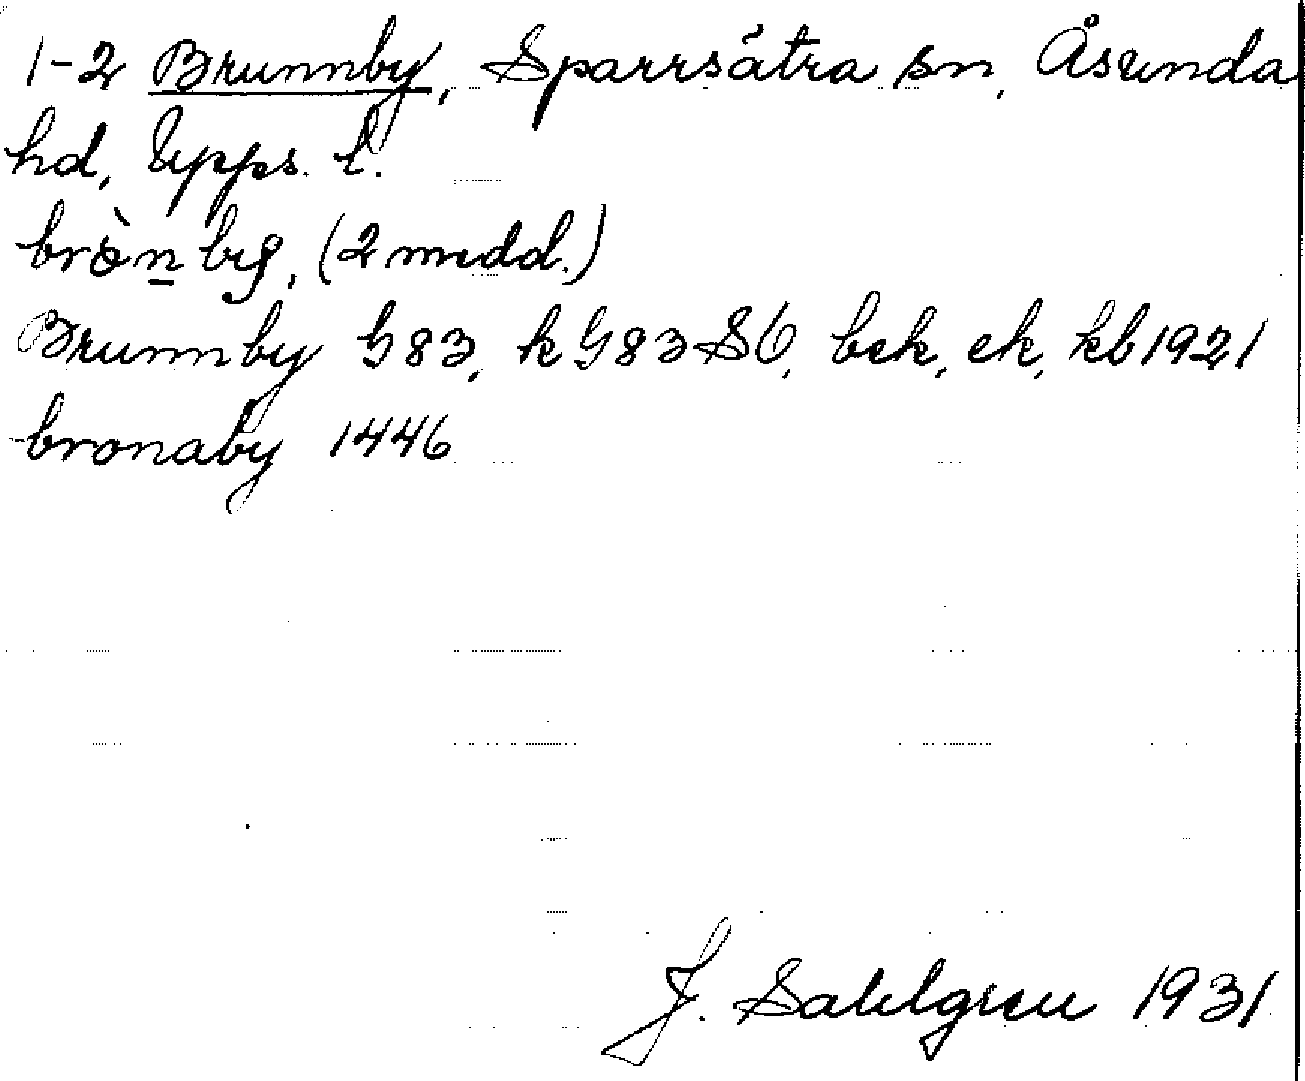 1-2 Brunnby, Sparrsätra sn, Åsunda
hd, Upps. l.
brön by, (2 medd.)
Brunnby G83, k G83 SÖ, bek, ek, kb 1921
bronaby 1446
J. Sahlgren 1931